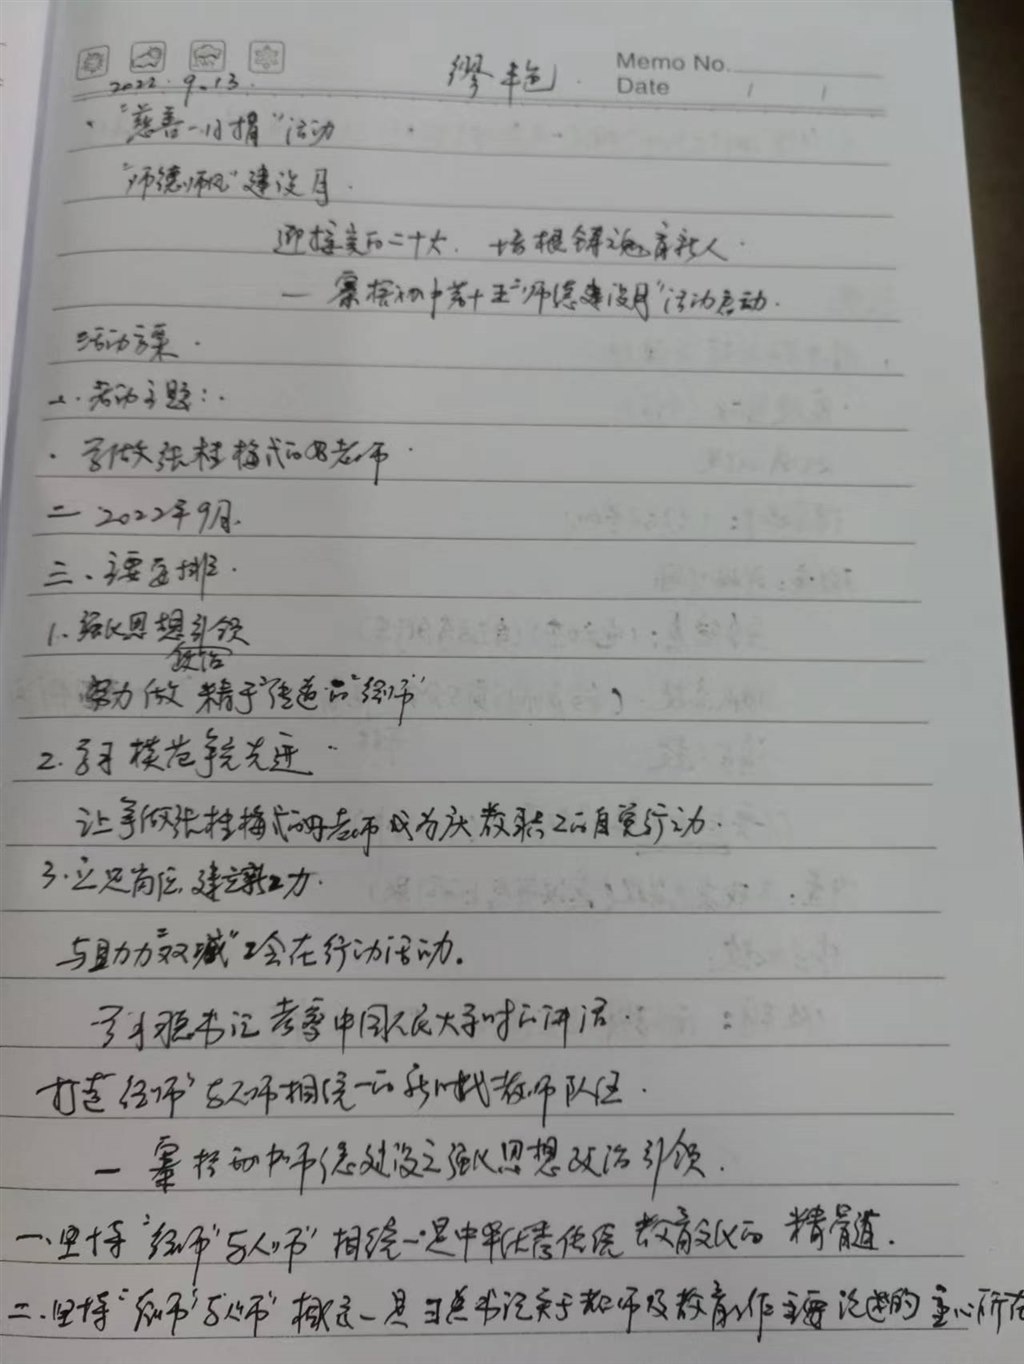 Memo No.
2022.9.13. 缪艳. Date / /
"慈善一日捐"活动
"师德师风"建设月.
迎接党的二十大. 培根铸魂育新人.
— 寨桥初中第十五"师德建设月"活动启动.
活动方案.
一. 活动主题:
学做张桂梅式的好老师
二 2022年9月.
三、主要安排.
1. 强化思想引领
政治
努力做 精于"传道"的"经师"
2. 学习模范争先进
让争做张桂梅式的好老师成为庆教职工的自觉行动.
3. 立足岗位, 建立新功.
与助力"双减"工会在行动活动.
学习总书记考察中国人民大学时的讲话.
打造"经师"与人师相统一的新时代教师队伍.
— 寨桥初中师德建设之强化思想政治引领.
一、坚持"经师"与"人师"相统一是中华优秀传统教育文化的精髓道.
二、坚持"经师"与"人师"相统一是习总书记关于教师及教育工作主要论述的重心所在